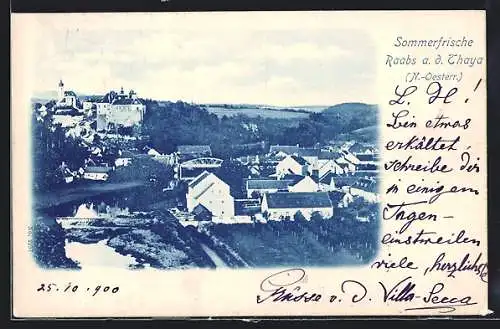 Sommerfrische
Raabs a. d. Thaya
(N.-Oesterr.)
L. H!
Bin etwas
erkältet,
schreibe Dir
in einigen
Tagen –
einstweilen
viele, herzliche
Grüsse v. d. Villa-Secca
25.10.900